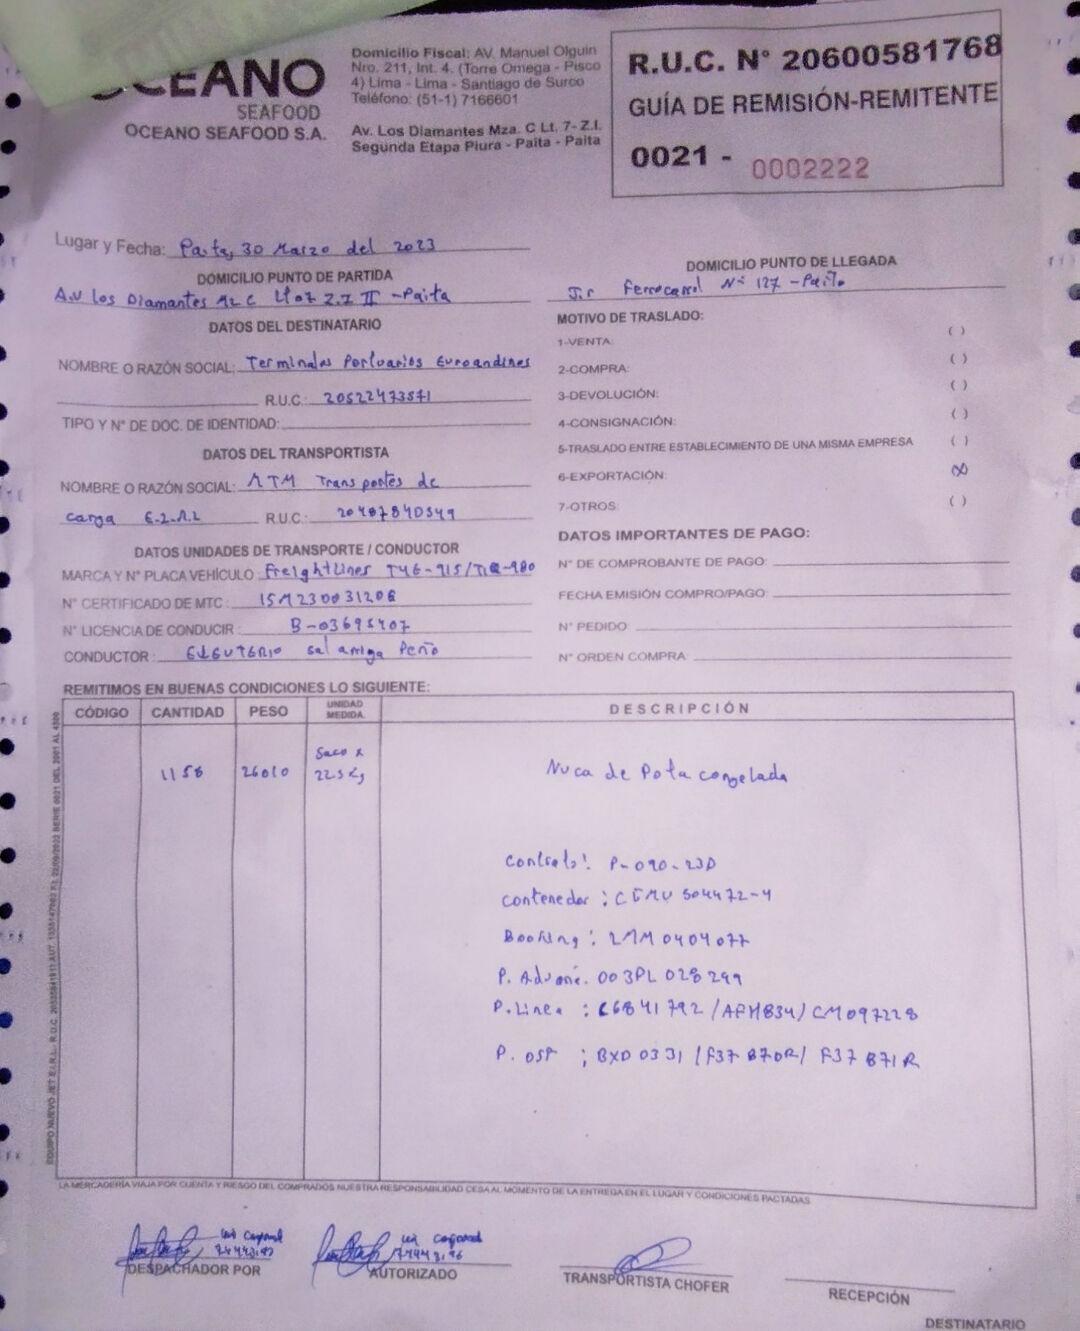 OCEANO
SEAFOOD
OCEANO SEAFOOD S.A.
Domicilio Fiscal: AV. Manuel Olguin
Nro. 211, Int. 4. (Torre Omega - Pisco
4) Lima - Lima - Santiago de Surco
Teléfono: (51-1) 7166601
Av. Los Diamantes Mza. C Lt. 7- Z.I.
Segunda Etapa Piura - Paita - Paita
R.U.C. N° 20600581768
GUÍA DE REMISIÓN-REMITENTE
0021 - 0002222
Lugar y Fecha: Paita, 30 Marzo del 2023
DOMICILIO PUNTO DE PARTIDA
A.V Los Diamantes Mz C Lt 07 Z.I II - Paita
DOMICILIO PUNTO DE LLEGADA
Jir Ferrocarril N° 127 - Paita
DATOS DEL DESTINATARIO
NOMBRE O RAZÓN SOCIAL: Terminales Portuarios Euroandinos
R.U.C.: 20522473571
TIPO Y N° DE DOC. DE IDENTIDAD:
DATOS DEL TRANSPORTISTA
NOMBRE O RAZÓN SOCIAL: MTM Transportes de
carga E.I.R.L R.U.C.: 20487840549
DATOS UNIDADES DE TRANSPORTE / CONDUCTOR
MARCA Y N° PLACA VEHÍCULO: FreightLines
N° CERTIFICADO DE MTC: 15M23003120E
N° LICENCIA DE CONDUCIR: B-03695407
CONDUCTOR:
MOTIVO DE TRASLADO:
1-VENTA: ( )
2-COMPRA: ( )
3-DEVOLUCIÓN: ( )
4-CONSIGNACIÓN: ( )
5-TRASLADO ENTRE ESTABLECIMIENTO DE UNA MISMA EMPRESA ( )
6-EXPORTACIÓN: (X)
7-OTROS: ( )
DATOS IMPORTANTES DE PAGO:
N° DE COMPROBANTE DE PAGO:
FECHA EMISIÓN COMPRO/PAGO:
N° PEDIDO
N° ORDEN COMPRA
REMITIMOS EN BUENAS CONDICIONES LO SIGUIENTE:
CÓDIGO CANTIDAD PESO UNIDAD MEDIDA. DESCRIPCIÓN
1156 26010 Saco x 22.5 Kg Nuca de Pota congelada
Contrato: P-090-23D
Contenedor: CEMU 504472-4
Booking: LMM0404077
P. Aduana. 003PL028299
P. Linea: C6841792 /APH834/ CM097228
P. OSP: BXD0331 / F37870R / F37871R
LA MERCADERÍA VIAJA POR CUENTA Y RIESGO DEL COMPRADOS NUESTRA RESPONSABILIDAD CESA AL MOMENTO DE LA ENTREGA EN EL LUGAR Y CONDICIONES PACTADAS
DESPACHADOR POR
AUTORIZADO
TRANSPORTISTA CHOFER
RECEPCIÓN
DESTINATARIO